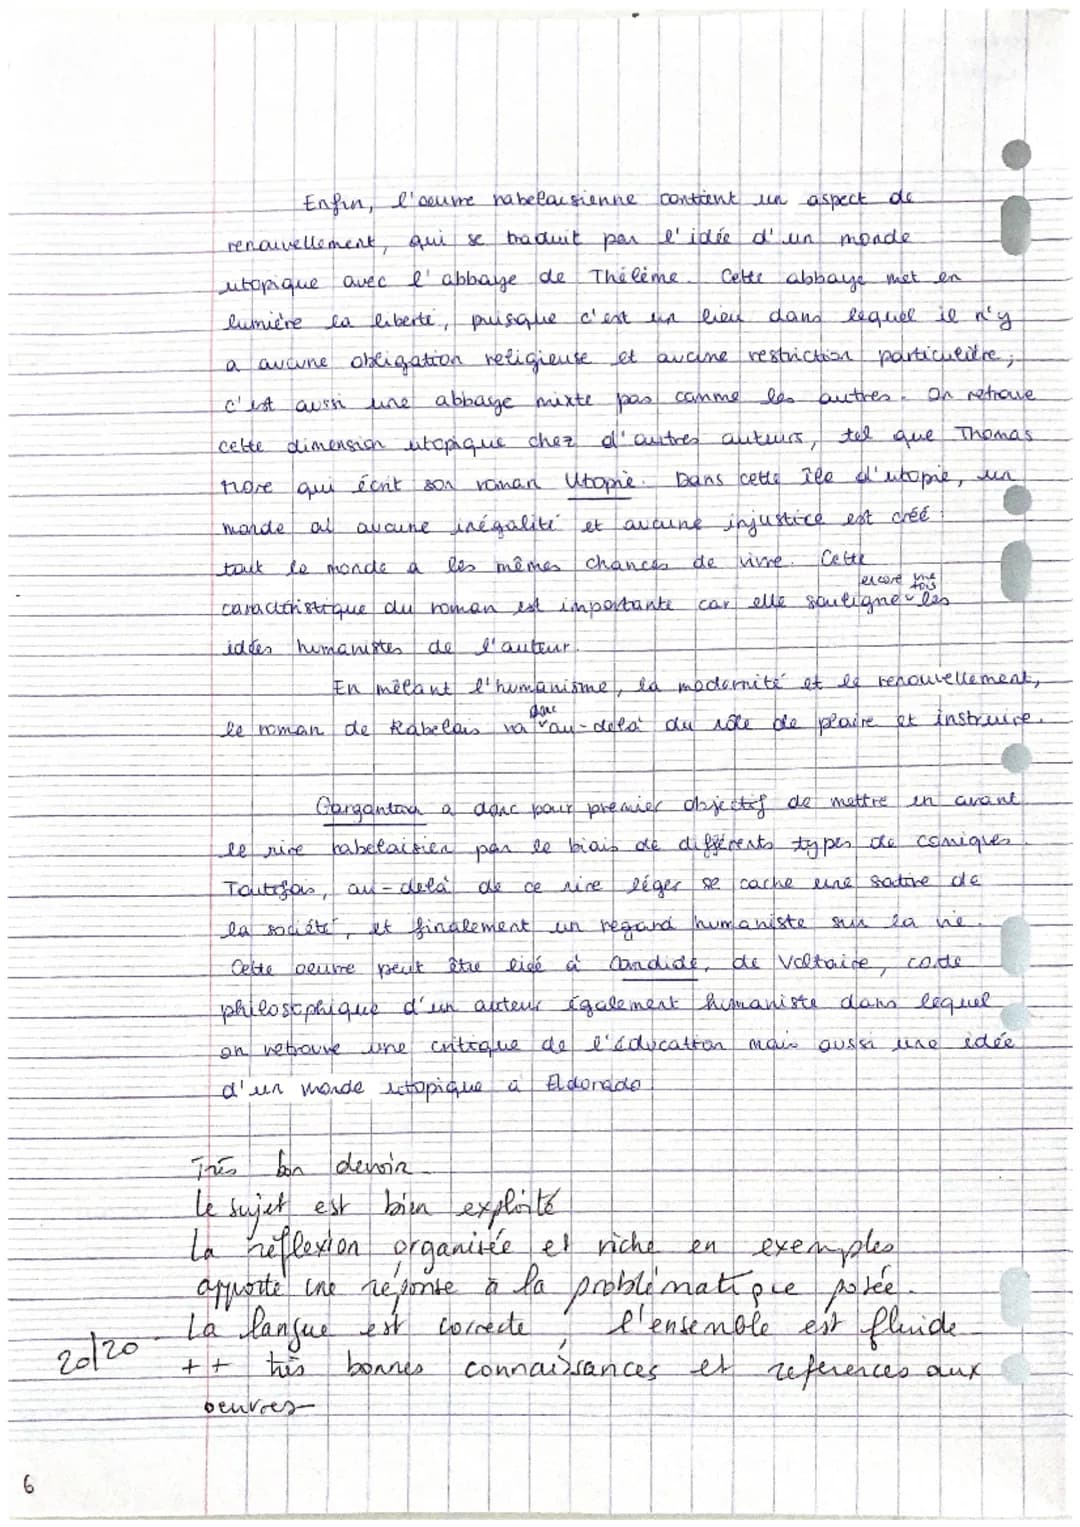 Enfin, l'oeuvre rabelaisienne contient un aspect de
renouvellement, qui se traduit par l'idée d'un monde
utopique avec l'abbaye de Thélème. Cette abbaye met en
lumière la liberté, puisque c'est un lieu dans lequel il n'y
a aucune obligation religieuse et aucune restriction particulière ;
c'est aussi une abbaye mixte pas comme les autres. On retrouve
cette dimension utopique chez d'autres auteurs, tel que Thomas
More qui écrit son roman Utopie. Dans cette île d'utopie, un
monde où aucune inégalité et aucune injustice est créé :
tout le monde a les mêmes chances de vivre. Cette
caractéristique du roman est importante car elle souligne encore une fois les
idées humanistes de l'auteur.
En mêlant l'humanisme, la modernité et le renouvellement,
le roman de Rabelais va donc au-delà du rôle de plaire et instruire.
Gargantua a donc pour premier objectif de mettre en avant
le rire rabelaisien par le biais de différents types de comiques.
Toutefois, au-delà de ce rire léger se cache une satire de
la société, et finalement un regard humaniste sur la vie.
Cette oeuvre peut être liée à Candide, de Voltaire, conte
philosophique d'un auteur également humaniste dans lequel
on retrouve une critique de l'éducation mais aussi une idée
d'un monde utopique à Eldorado.
Très bon devoir
Le sujet est bien exploité
La réflexion organisée et riche en exemples
apporte une réponse à la problématique posée.
La langue est correcte, l'ensemble est fluide
20/20
++ très bonnes connaissances et references aux
oeuvres
6